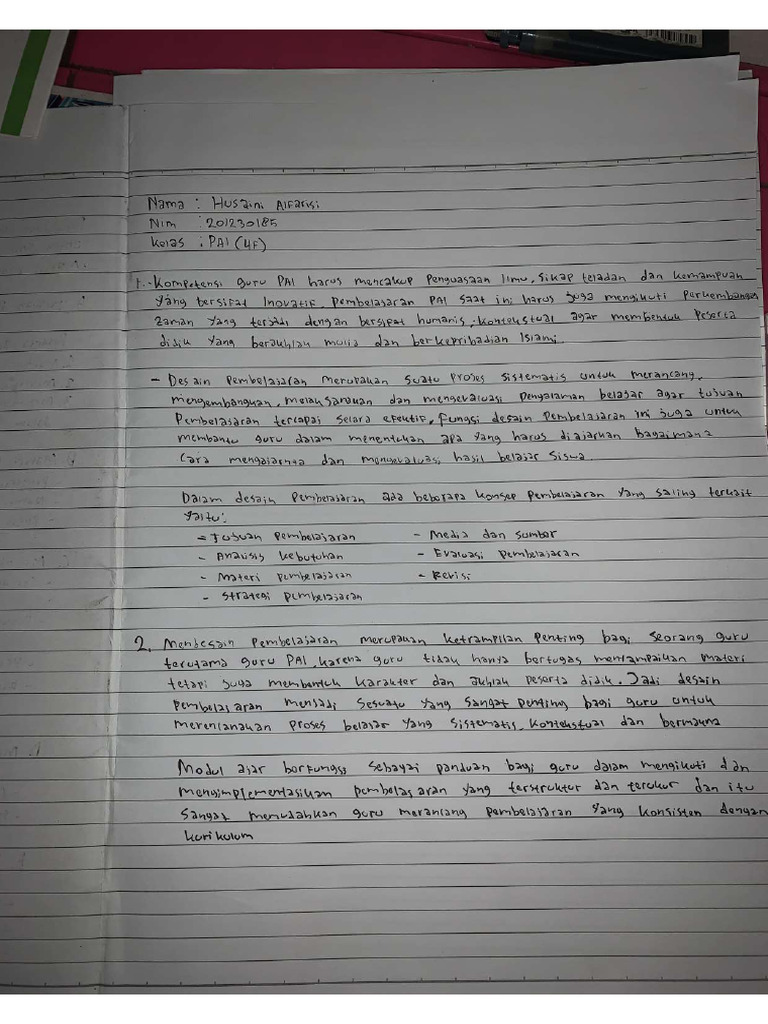 Nama : Husaini Alfarisi
Nim : 201230185
Kelas : PAI (4F)
1. - Kompetensi guru PAI harus mencakup Penguasaan Ilmu, Sikap teladan dan kemampuan
yang bersifat Inovatif. Pembelajaran PAI saat ini harus juga mengikuti Perkembangan
Zaman yang terjadi dengan bersifat humanis, kontekstual agar membentuk Peserta
didik yang berakhlak mulia dan berkepribadian Islami.
- Desain Pembelajaran Merupakan Suatu Proses Sistematis untuk merancang,
mengembangkan, melaksanakan dan mengevaluasi Pengalaman belajar agar tujuan
Pembelajaran tercapai selara efektif. Fungsi desain Pembelajaran ini juga untuk
membantu guru dalam menentukan apa yang harus diajarkan bagaimana
Cara mengajarnya dan mengevaluasi hasil belajar Siswa.
Dalam desain Pembelajaran ada beberapa Konsep Pembelajaran yang saling terkait
yaitu:
- Tujuan Pembelajaran - Media dan sumber
- Analisis kebutuhan - Evaluasi Pembelajaran
- Materi pembelajaran - Revisi
- Strategi pembelajaran
2. Mendesain Pembelajaran merupakan ketrampilan Penting bagi Seorang guru
terutama guru PAI, karena guru tidak hanya bertugas menyampaikan materi
tetapi juga membentuk karakter dan akhlak peserta didik. Jadi desain
pembelajaran menjadi Sesuatu yang sangat penting bagi guru untuk
merencanakan Proses belajar yang Sistematis, Kontekstual dan bermakna
Modul ajar berfungsi Sebagai panduan bagi guru dalam mengikuti dan
mengimplementasikan pembelajaran yang terstruktur dan terukur dan itu
Sangat memudahkan guru merancang pembelajaran yang konsisten dengan
kurikulum